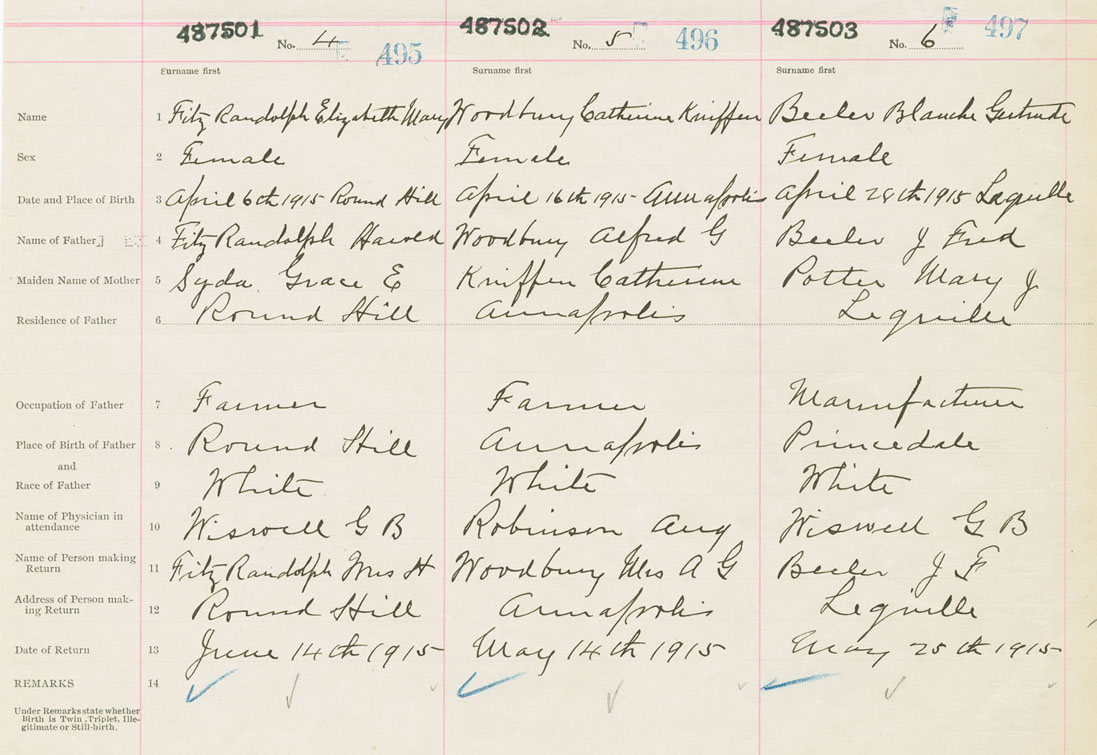 487501 No. 4 495 487502 No. 5 496 487503 No. 6 497
Surname first Surname first Surname first
Name 1 Fitz Randolph Elizabeth Mary Woodbury Catherine Kniffen Beeler Blanche Gertrude
Sex 2 Female Female Female
Date and Place of Birth 3 April 6th 1915 Round Hill April 16th 1915 Annapolis April 28th 1915 Lequille
Name of Father 4 Fitz Randolph Harold Woodbury Alfred G Beeler J Fred
Maiden Name of Mother 5 Syda Grace E Kniffen Catherine Potter Mary J
Residence of Father 6 Round Hill Annapolis Leqville
Occupation of Father 7 Farmer Farmer Manufacturer
Place of Birth of Father 8 Round Hill Annapolis Princedale
and
Race of Father 9 White White White
Name of Physician in
attendance 10 Wiswell G B Robinson Aug Wiswell G B
Name of Person making
Return 11 Fitz Randolph Mrs H Woodbury Mrs A G Beeler J F
Address of Person mak-
ing Return 12 Round Hill Annapolis Leqville
Date of Return 13 June 14th 1915 May 14th 1915 May 25th 1915
REMARKS 14
Under Remarks state whether
Birth is Twin, Triplet, Ille-
gitimate or Still-birth.